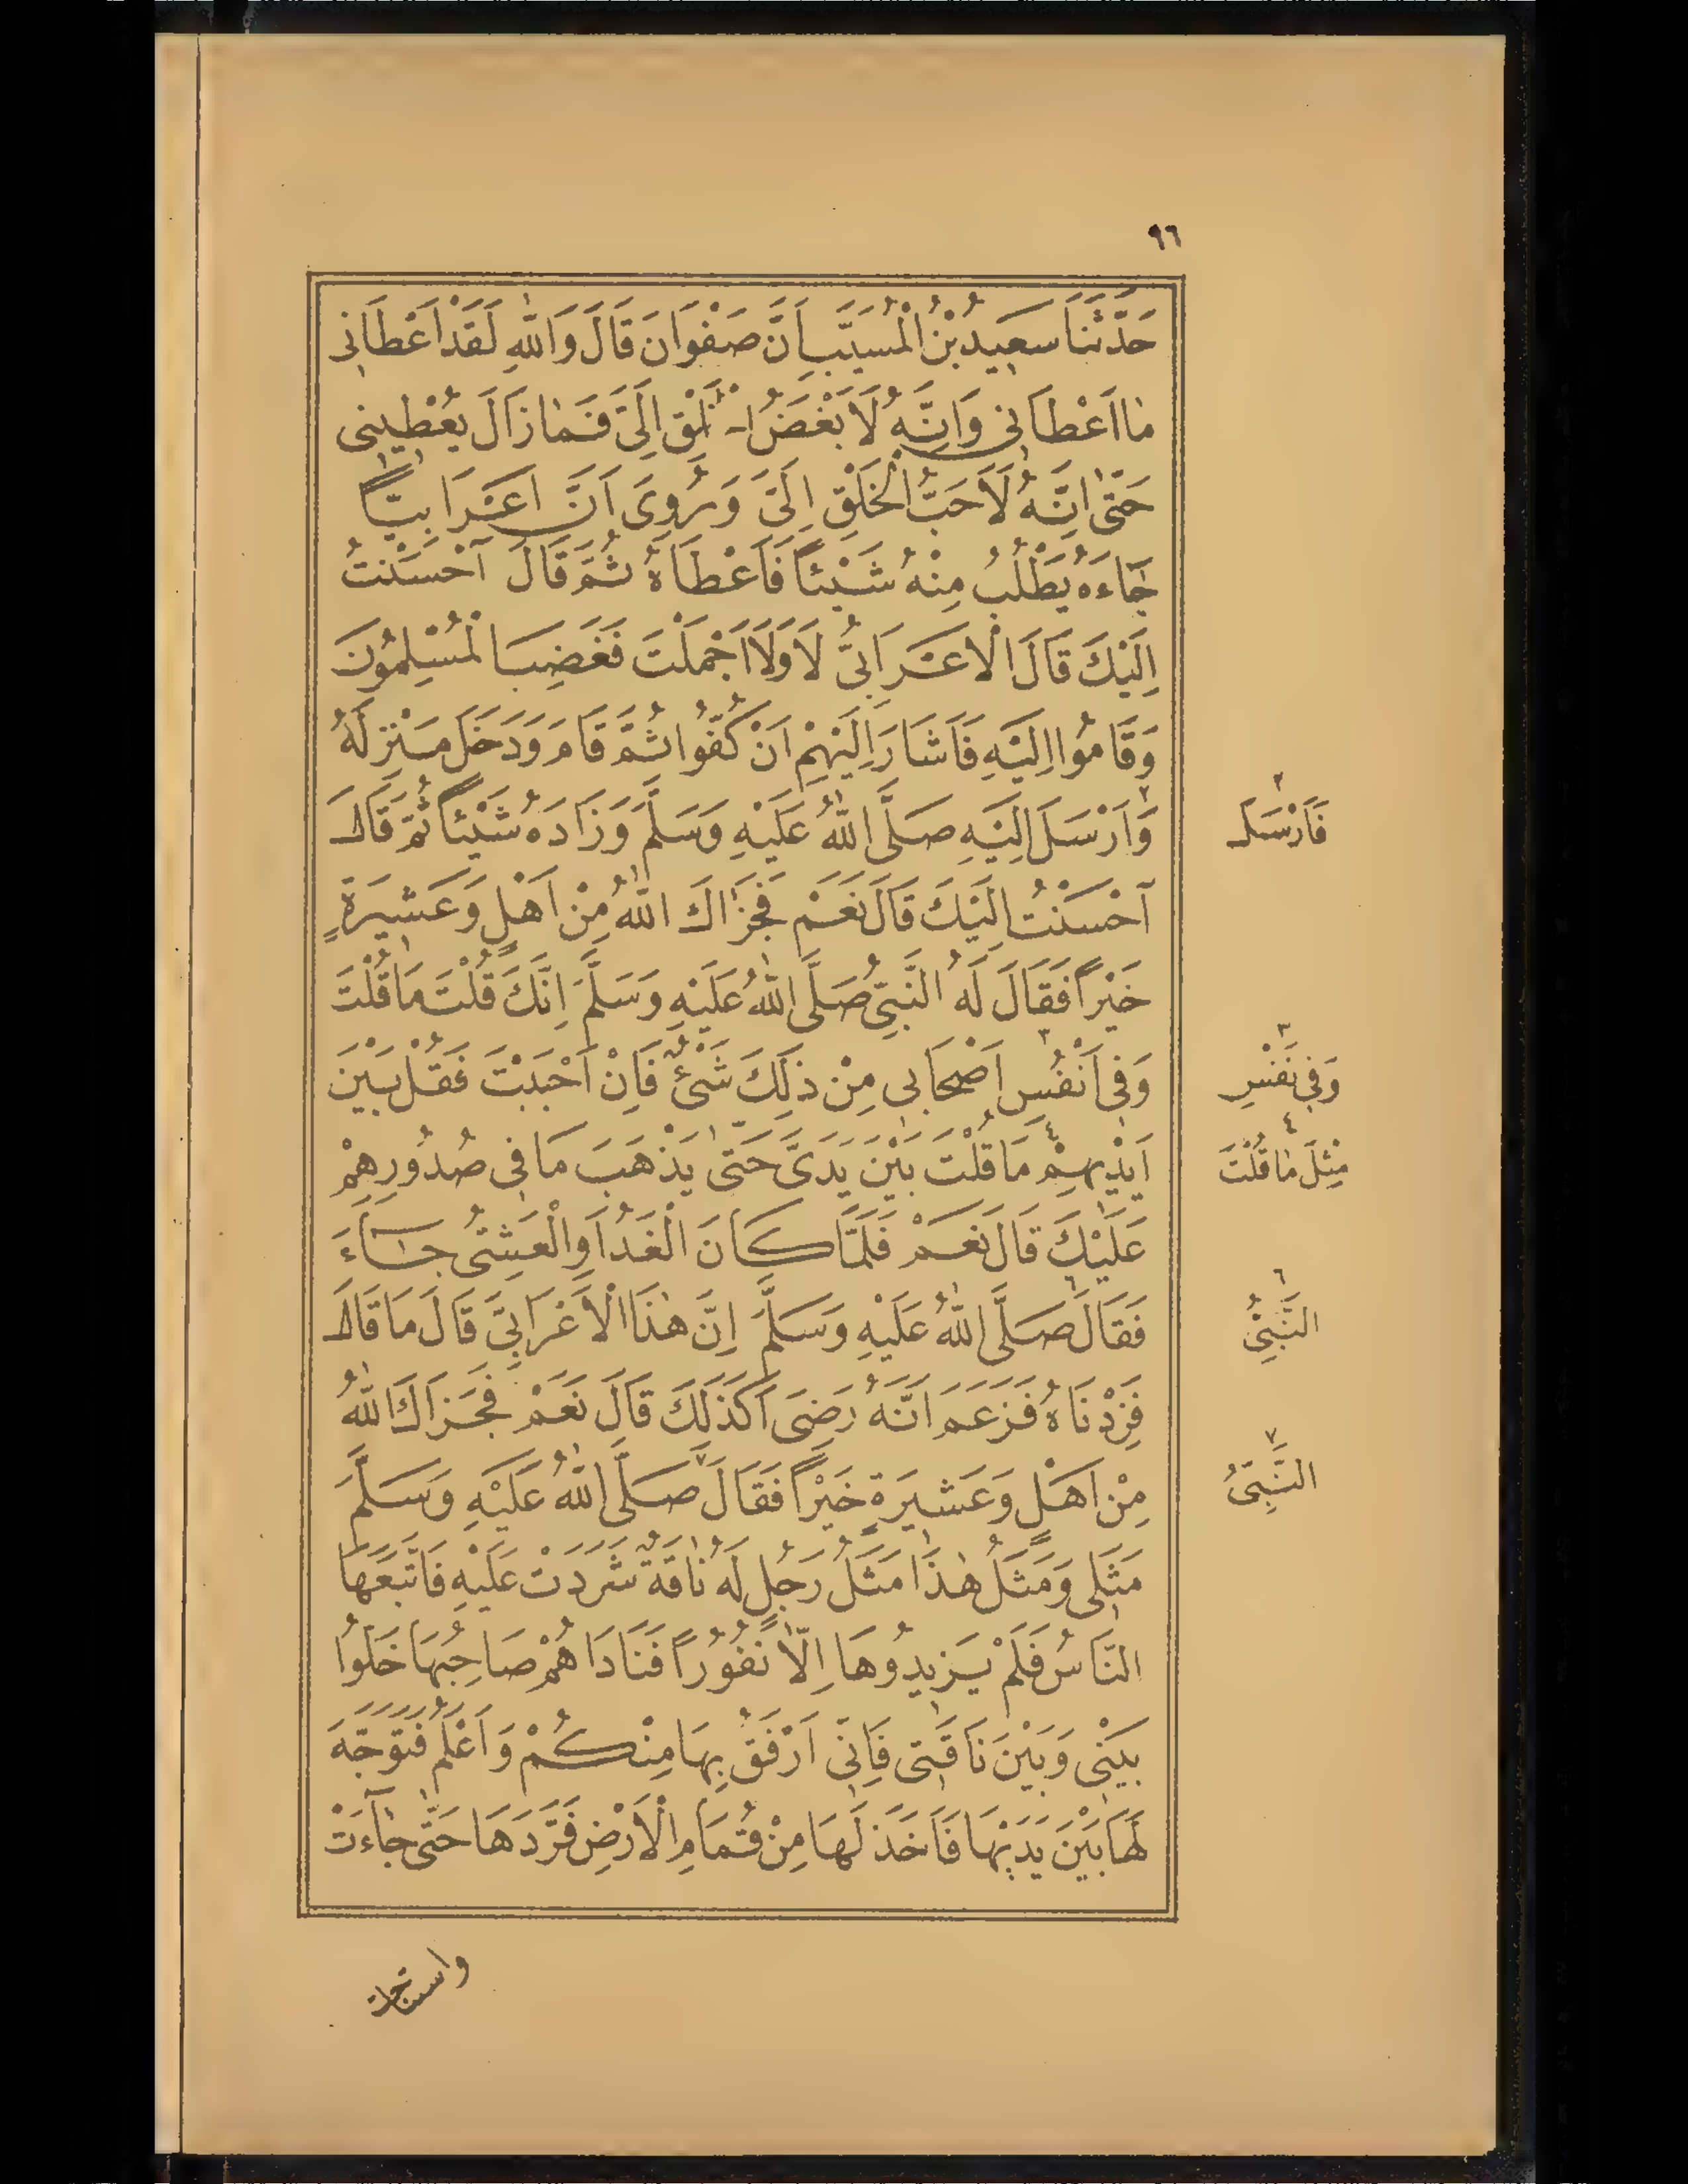 ٩٦
حَدَّثَنَا سَعِيدُ بْنُ الْمُسَيَّبِ اَنَّ صَفْوَانَ قَالَ وَاللّٰهِ لَقَدْ اَعْطَانِى
مَا اَعْطَانِى وَاِنَّهُ لَاَبْغَضُ الْخَلْقِ اِلَىَّ فَمَا زَالَ يُعْطِينِى
حَتّٰى اِنَّهُ لَاَحَبُّ الْخَلْقِ اِلَىَّ وَرُوِىَ اَنَّ اَعْرَابِيًّا
جَاءَهُ يَطْلُبُ مِنْهُ شَيْئًا فَاَعْطَاهُ ثُمَّ قَالَ آحْسَنْتُ
اِلَيْكَ قَالَ الْاَعْرَابِىُّ لَا وَلَا اَجْمَلْتَ فَغَضِبَ الْمُسْلِمُونَ
وَقَامُوا اِلَيْهِ فَاَشَارَ اِلَيْهِمْ اَنْ كُفُّوا ثُمَّ قَامَ وَدَخَلَ مَنْزِلَهُ
وَاَرْسَلَ اِلَيْهِ صَلَّى اللّٰهُ عَلَيْهِ وَسَلَّمَ وَزَادَهُ شَيْئًا ثُمَّ قَالَ
آحْسَنْتُ اِلَيْكَ قَالَ نَعَمْ فَجَزَاكَ اللّٰهُ مِنْ اَهْلٍ وَعَشِيرَةٍ
خَيْرًا فَقَالَ لَهُ النَّبِىُّ صَلَّى اللّٰهُ عَلَيْهِ وَسَلَّمَ اِنَّكَ قُلْتَ مَا قُلْتَ
وَفِى اَنْفُسِ اَصْحَابِى مِنْ ذٰلِكَ شَىْءٌ فَاِنْ اَحْبَبْتَ فَقُلْ بَيْنَ
اَيْدِيهِمْ مَا قُلْتَ بَيْنَ يَدَىَّ حَتّٰى يَذْهَبَ مَا فِى صُدُورِهِمْ
عَلَيْكَ قَالَ نَعَمْ فَلَمَّا كَانَ الْغَدُ اَوِ الْعَشِىُّ جَاءَ
فَقَالَ صَلَّى اللّٰهُ عَلَيْهِ وَسَلَّمَ اِنَّ هٰذَا الْاَعْرَابِىَّ قَالَ مَا قَالَ
فَزِدْنَاهُ فَزَعَمَ اَنَّهُ رَضِىَ اَكَذٰلِكَ قَالَ نَعَمْ فَجَزَاكَ اللّٰهُ
مِنْ اَهْلٍ وَعَشِيرَةٍ خَيْرًا فَقَالَ٧ صَلَّى اللّٰهُ عَلَيْهِ وَسَلَّمَ
مَثَلِى وَمَثَلُ هٰذَا مَثَلُ رَجُلٍ لَهُ نَاقَةٌ شَرَدَتْ عَلَيْهِ فَاتَّبَعَهَا
النَّاسُ فَلَمْ يَزِيدُوهَا اِلَّا نُفُورًا فَنَادَاهُمْ صَاحِبُهَا خَلُّوا
بَيْنِى وَبَيْنَ نَاقَتِى فَاِنِّى اَرْفَقُ بِهَا مِنْكُمْ وَاَعْلَمُ فَتَوَجَّهَ
لَهَا بَيْنَ يَدَيْهَا فَاَخَذَ لَهَا مِنْ قُمَامِ الْاَرْضِ فَرَدَّهَا حَتّٰى جَاءَتْ
٢
فَاَرْسَلَ
٣
وَفِى نَفْسِ
٤
مِثْلَ مَا قُلْتَ
٦
النَّبِىُّ
٧
النَّبِىُّ